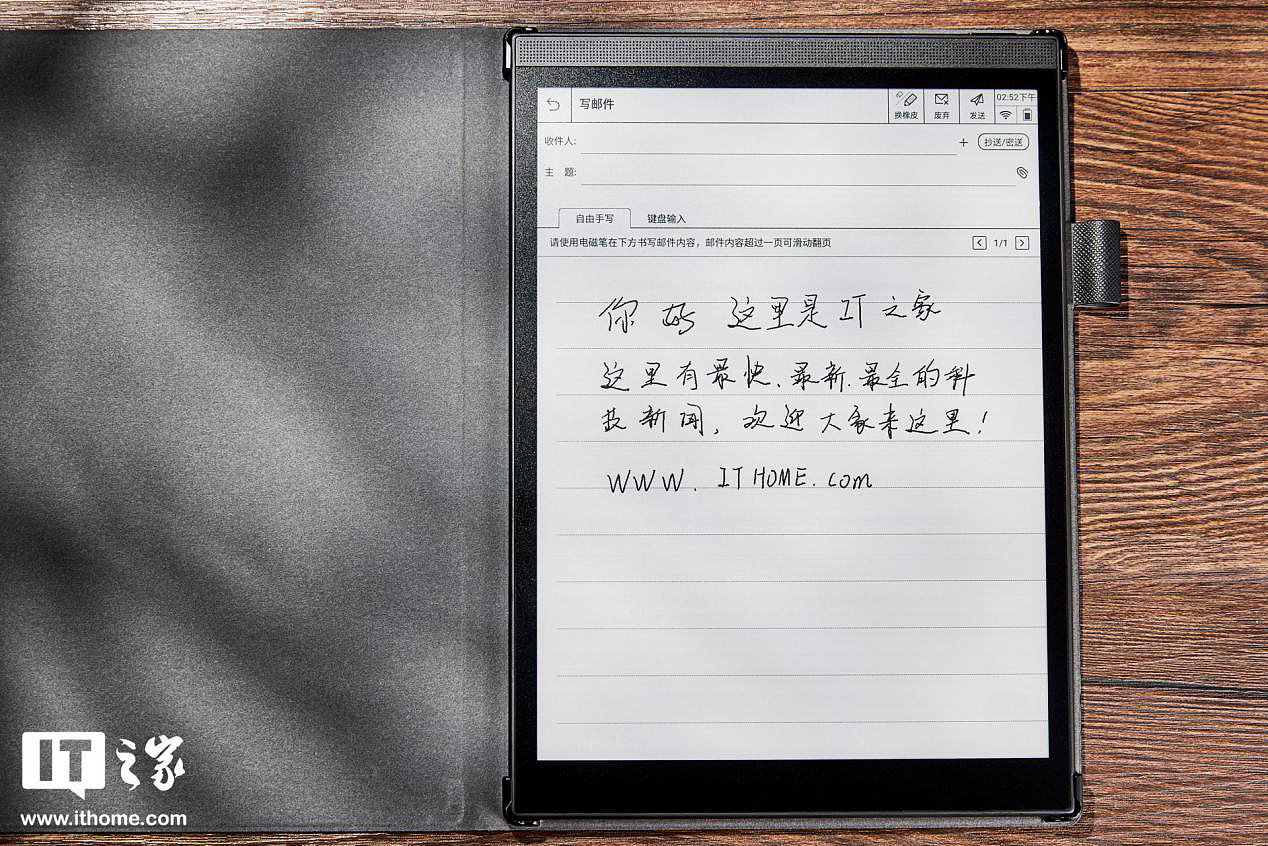 写邮件
换橡皮 废弃 发送 02:52下午
收件人: + 抄送/密送
主 题:
自由手写 键盘输入
请使用电磁笔在下方书写邮件内容，邮件内容超过一页可滑动翻页 1/1
你好 这里是IT之家
这里有最快、最新、最全的科
技新闻，欢迎大家来这里！
WWW. ITHOME.com
IT之家
www.ithome.com